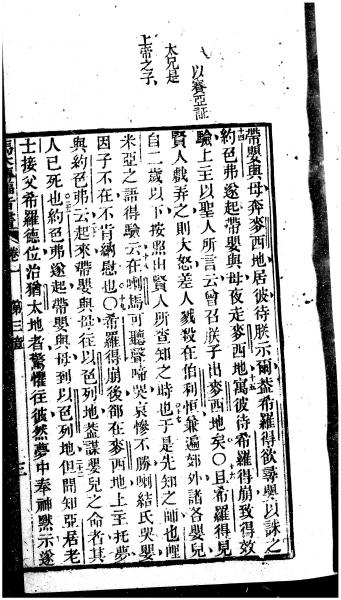 以賽亞証
太兄是
上帝之子
帶嬰與母奔麥西地居彼待朕示爾蓋希羅得欲尋嬰以誅之
約色弗遂起帶嬰與母夜走麥西地寓彼待希羅得崩致得效
驗上主以聖人所言云曾召朕子出麥西地矣〇且希羅得見
賢人戲弄之則大怒差人戮殺在伯利恒兼遍郊外諸各嬰兒
自二歲以下按照由賢人所查知之時也于是先知之師也
米亞之語得驗云在喇馬可聽聲啼哭哀慘不勝喇結氏哭嬰
因子不在不肯納慰也〇希羅得崩後都在麥西地上主托夢
與約色弗云起來帶嬰與母往以色列地蓋謀嬰兒之命者其
人已死也約色弗遂起帶嬰與母到以色列地但聞知亞居老
士接父希羅德位治猶太地者驚懼往彼然夢中奉神默示遂
卷一 第三章 三